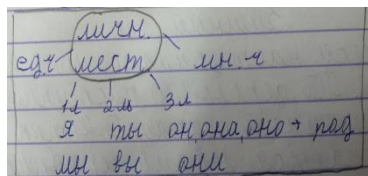 личн.
ед.ч мест. мн.ч
1л 2л 3л
я ты он, она, оно → род
мы вы они